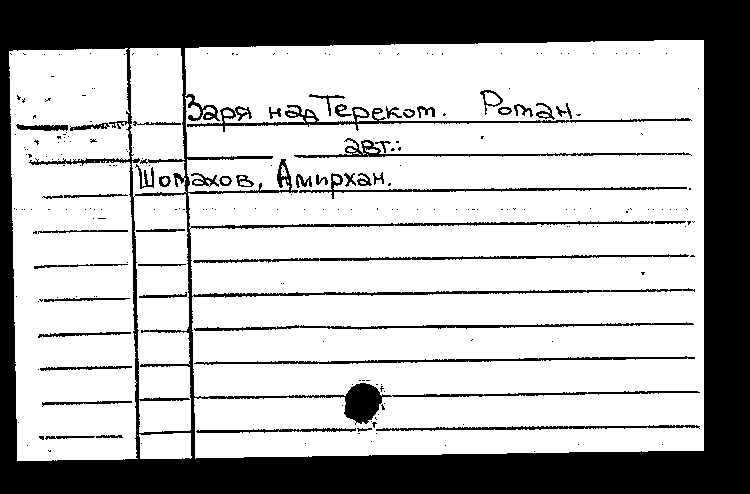 Заря над Тереком. Роман.
авт.:
Шомахов, Амирхан.